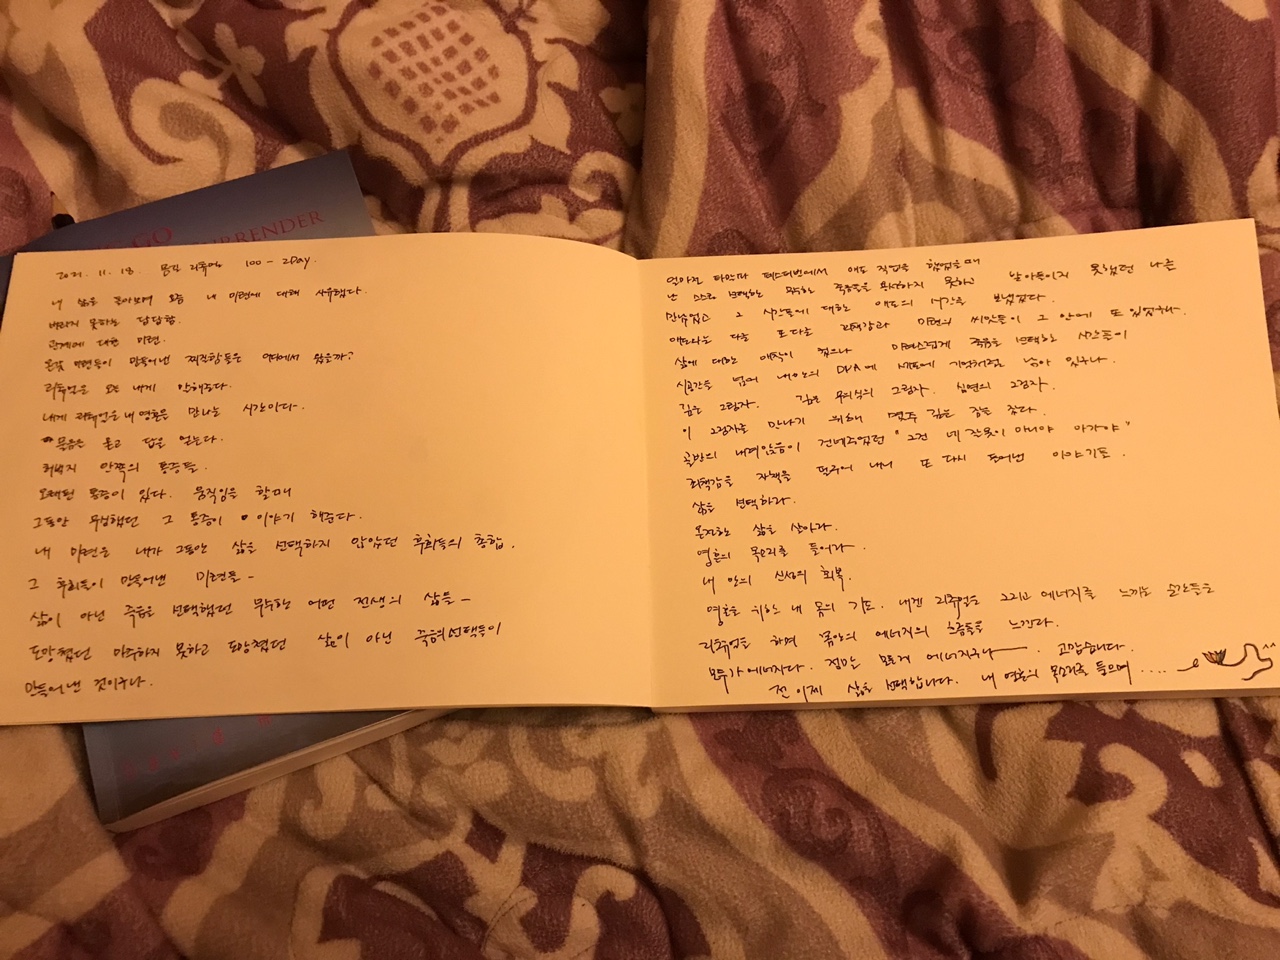 GO
SURRENDER
2021. 11. 18. 몸만 리츄얼 100 - 2Day.
내 삶을 돌아보며 오늘 내 미련에 대해 사유했다.
버리지 못하는 답답함.
관계에 대한 미련.
온갖 미련들이 만들어낸 찌질함들은 어디에서 왔을까?
리츄얼은 오늘 내게 말해준다.
내게 리츄얼은 내 영혼을 만나는 시간이다.
물음을 묻고 답을 얻는다.
허벅지 안쪽의 통증들.
오래된 통증이 있다. 움직임을 할때
그동안 무시했던 그 통증이 이야기 해준다.
내 미련은 내가 그동안 삶을 선택하지 않았던 후회들의 총합.
그 후회들이 만들어낸 미련들 -
삶이 아닌 죽음을 선택했던 무수한 어떤 전생의 삶들 -
도망쳤던 마주하지 못하고 도망쳤던 삶이 아닌 죽음의 선택들이
만들어 낸 것이구나.
얼마전 타인파 페스티벌에서 애도 작업을 했었을때
난 스스로 선택하는 죽음을 용서하지 못하고 받아들이지 못했던 나를
만났었고 그 시간들에 대한 애도의 시간을 보냈었다.
애도와는 다른 또 다른 죄책감과 미련의 씨앗들이 그 안에 또 있었구나.
삶에 대한 애착이 컸으나 어리석게 죽음을 선택한 시간들이
시공간을 넘어 내 안의 DNA에 세포에 기억처럼 남아 있구나.
깊은 그림자. 깊은 무의식의 그림자. 심연의 그림자.
이 그림자를 만나기 위해 며칠 깊은 잠을 잤다.
골반의 내면아이가 건네주었던 "그건 네 잘못이 아니야 아가야"
죄책감을 자책을 딛고 내서 또 다시 토해낸 이야기로.
삶을 선택하라.
온전한 삶을 살아라.
영혼의 목소리를 들어라.
내 안의 신성의 회복.
영혼을 위한 내 몸의 기도. 내겐 리츄얼은 그리고 에너지를 느끼는 순간들을
리츄얼을 하며 몸안의 에너지의 흐름들을 느낀다.
모두가 에너지다. 정말 모든게 에너지구나 ――. 고맙습니다.
전 이제 삶을 선택합니다. 내 영혼의 목소리를 들으며 ....